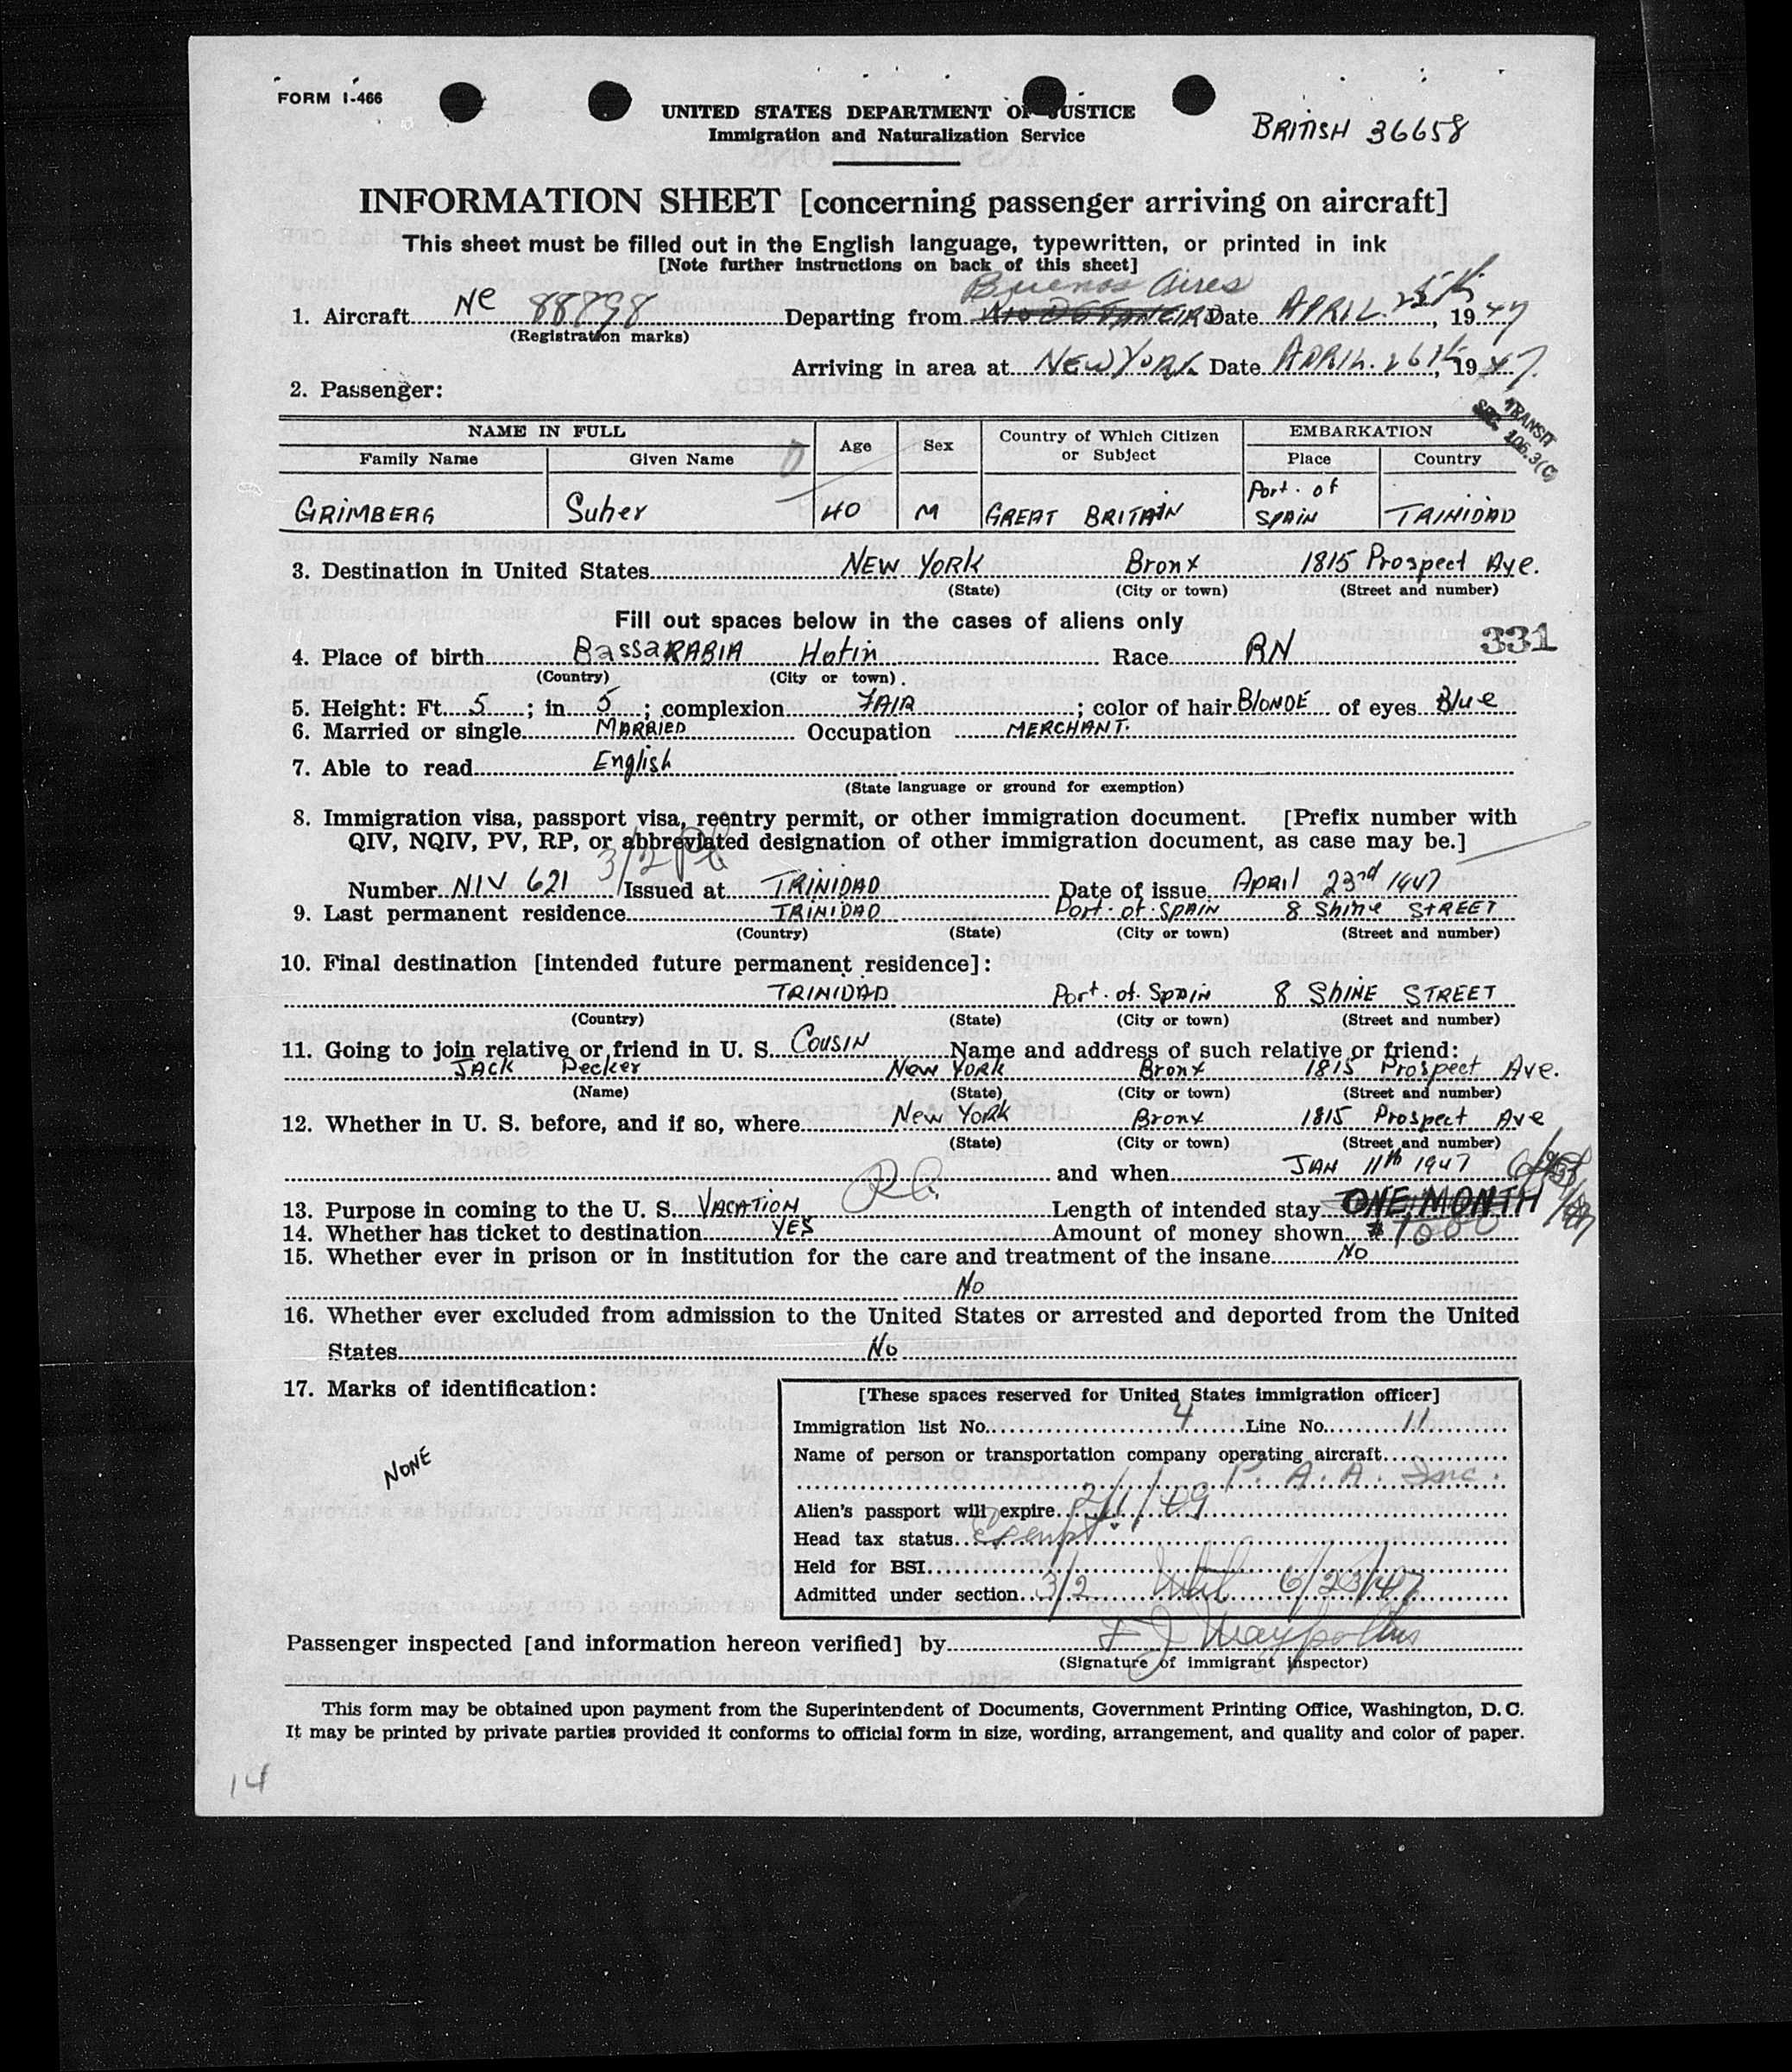 FORM I-466
UNITED STATES DEPARTMENT OF JUSTICE
Immigration and Naturalization Service
BRITISH 36658
INFORMATION SHEET [concerning passenger arriving on aircraft]
This sheet must be filled out in the English language, typewritten, or printed in ink
[Note further instructions on back of this sheet]
Buenos Aires
1. Aircraft Nc 88898 Departing from Date APRIL 25th, 1947
(Registration marks)
Arriving in area at NEW YORK Date APRIL 26th, 1947.
2. Passenger:
TRANSIT
SEC. 106.3(C)
NAME IN FULL Age Sex Country of Which Citizen or Subject EMBARKATION
Family Name Given Name Place Country
GRIMBERG Suher 40 M GREAT BRITAIN Port. of SPAIN TRINIDAD
3. Destination in United States NEW YORK Bronx 1815 Prospect Ave.
(State) (City or town) (Street and number)
Fill out spaces below in the cases of aliens only
331
4. Place of birth BassaRABIA Hotin Race RN
(Country) (City or town)
5. Height: Ft. 5; in 5; complexion FAIR; color of hair BLONDE of eyes Blue
6. Married or single MARRIED Occupation MERCHANT.
7. Able to read English
(State language or ground for exemption)
8. Immigration visa, passport visa, reentry permit, or other immigration document. [Prefix number with
QIV, NQIV, PV, RP, or abbreviated designation of other immigration document, as case may be.]
3/2
Number NIV 621 Issued at TRINIDAD Date of issue April 23rd 1947
9. Last permanent residence TRINIDAD Port. of. SPAIN 8 Shine STREET
(Country) (State) (City or town) (Street and number)
10. Final destination [intended future permanent residence]:
TRINIDAD Port. of. SPAIN 8 SHINE STREET
(Country) (State) (City or town) (Street and number)
11. Going to join relative or friend in U. S. COUSIN Name and address of such relative or friend:
JACK Pecker New YORK Bronx 1815 Prospect Ave.
(Name) (State) (City or town) (Street and number)
12. Whether in U. S. before, and if so, where New YORK Bronx 1815 Prospect Ave
(State) (City or town) (Street and number)
and when JAN 11th 1947
13. Purpose in coming to the U. S. VACATION Length of intended stay ONE MONTH
14. Whether has ticket to destination YES Amount of money shown $1000
15. Whether ever in prison or in institution for the care and treatment of the insane No
No
16. Whether ever excluded from admission to the United States or arrested and deported from the United
States No
17. Marks of identification:
NONE
[These spaces reserved for United States immigration officer]
Immigration list No. 4 Line No. 11
Name of person or transportation company operating aircraft
P. A. A. Inc.
Alien's passport will expire 2/1/49
Head tax status Exempt.
Held for BSI
Admitted under section 3/2 until 6/23/47
Passenger inspected [and information hereon verified] by
(Signature of immigrant inspector)
This form may be obtained upon payment from the Superintendent of Documents, Government Printing Office, Washington, D. C.
It may be printed by private parties provided it conforms to official form in size, wording, arrangement, and quality and color of paper.
14